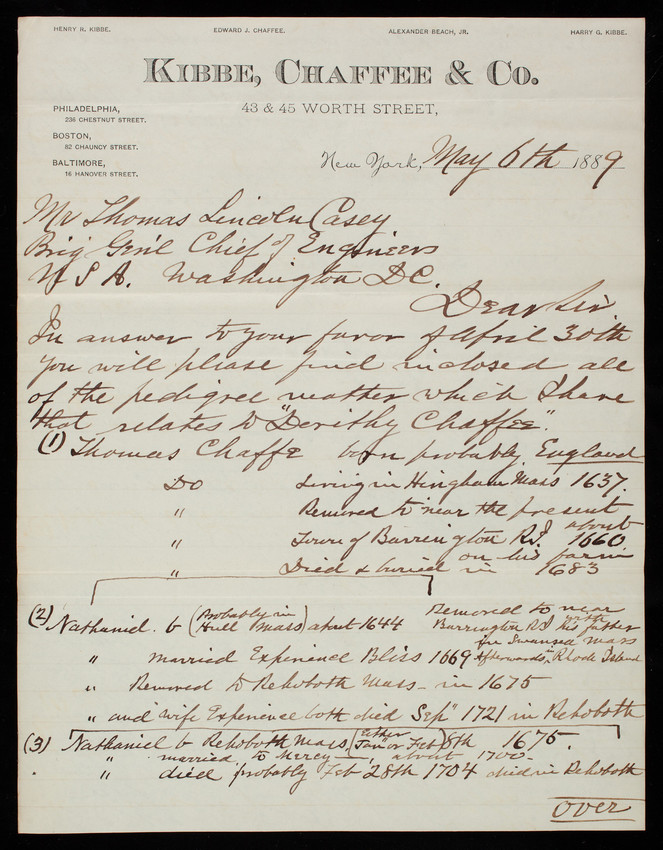 HENRY R. KIBBE. EDWARD J. CHAFFEE. ALEXANDER BEACH, JR. HARRY G. KIBBE.
KIBBE, CHAFFEE & CO.
43 & 45 WORTH STREET,
PHILADELPHIA,
236 CHESTNUT STREET.
BOSTON,
82 CHAUNCY STREET.
BALTIMORE,
16 HANOVER STREET.
New York, May 6th 1889
Mr Thomas Lincoln Casey
Brig Genl Chief of Engineers
U S A. Washington D.C.
Dear Sir
In answer to your favor of April 30th
you will please find inclosed all
of the pedigree matter which I have
that relates to "Dorithy Chaffee".
(1) Thomas Chaffe born probably England
Do Living in Hingham Mass 1637.
" Removed to near the present
" Town of Barrington R.I. about 1660
" Died & buried on his farm in 1683
(2) Nathaniel b (Probably in Hull Mass) about 1644 Removed to near
Barrington RI with his father
in Swansea Mass
" married Experience Bliss 1669 Afterwards in Rhode Island
" Removed to Rehoboth Mass - in 1675
" and wife Experience both died Sep" 1721 in Rehoboth
(3) Nathaniel b Rehoboth Mass (Either Jan" or Feb) 8th 1675.
" married to Mercy —, about 1700 -
" died probably Feb 28th 1704 died in Rehoboth
over